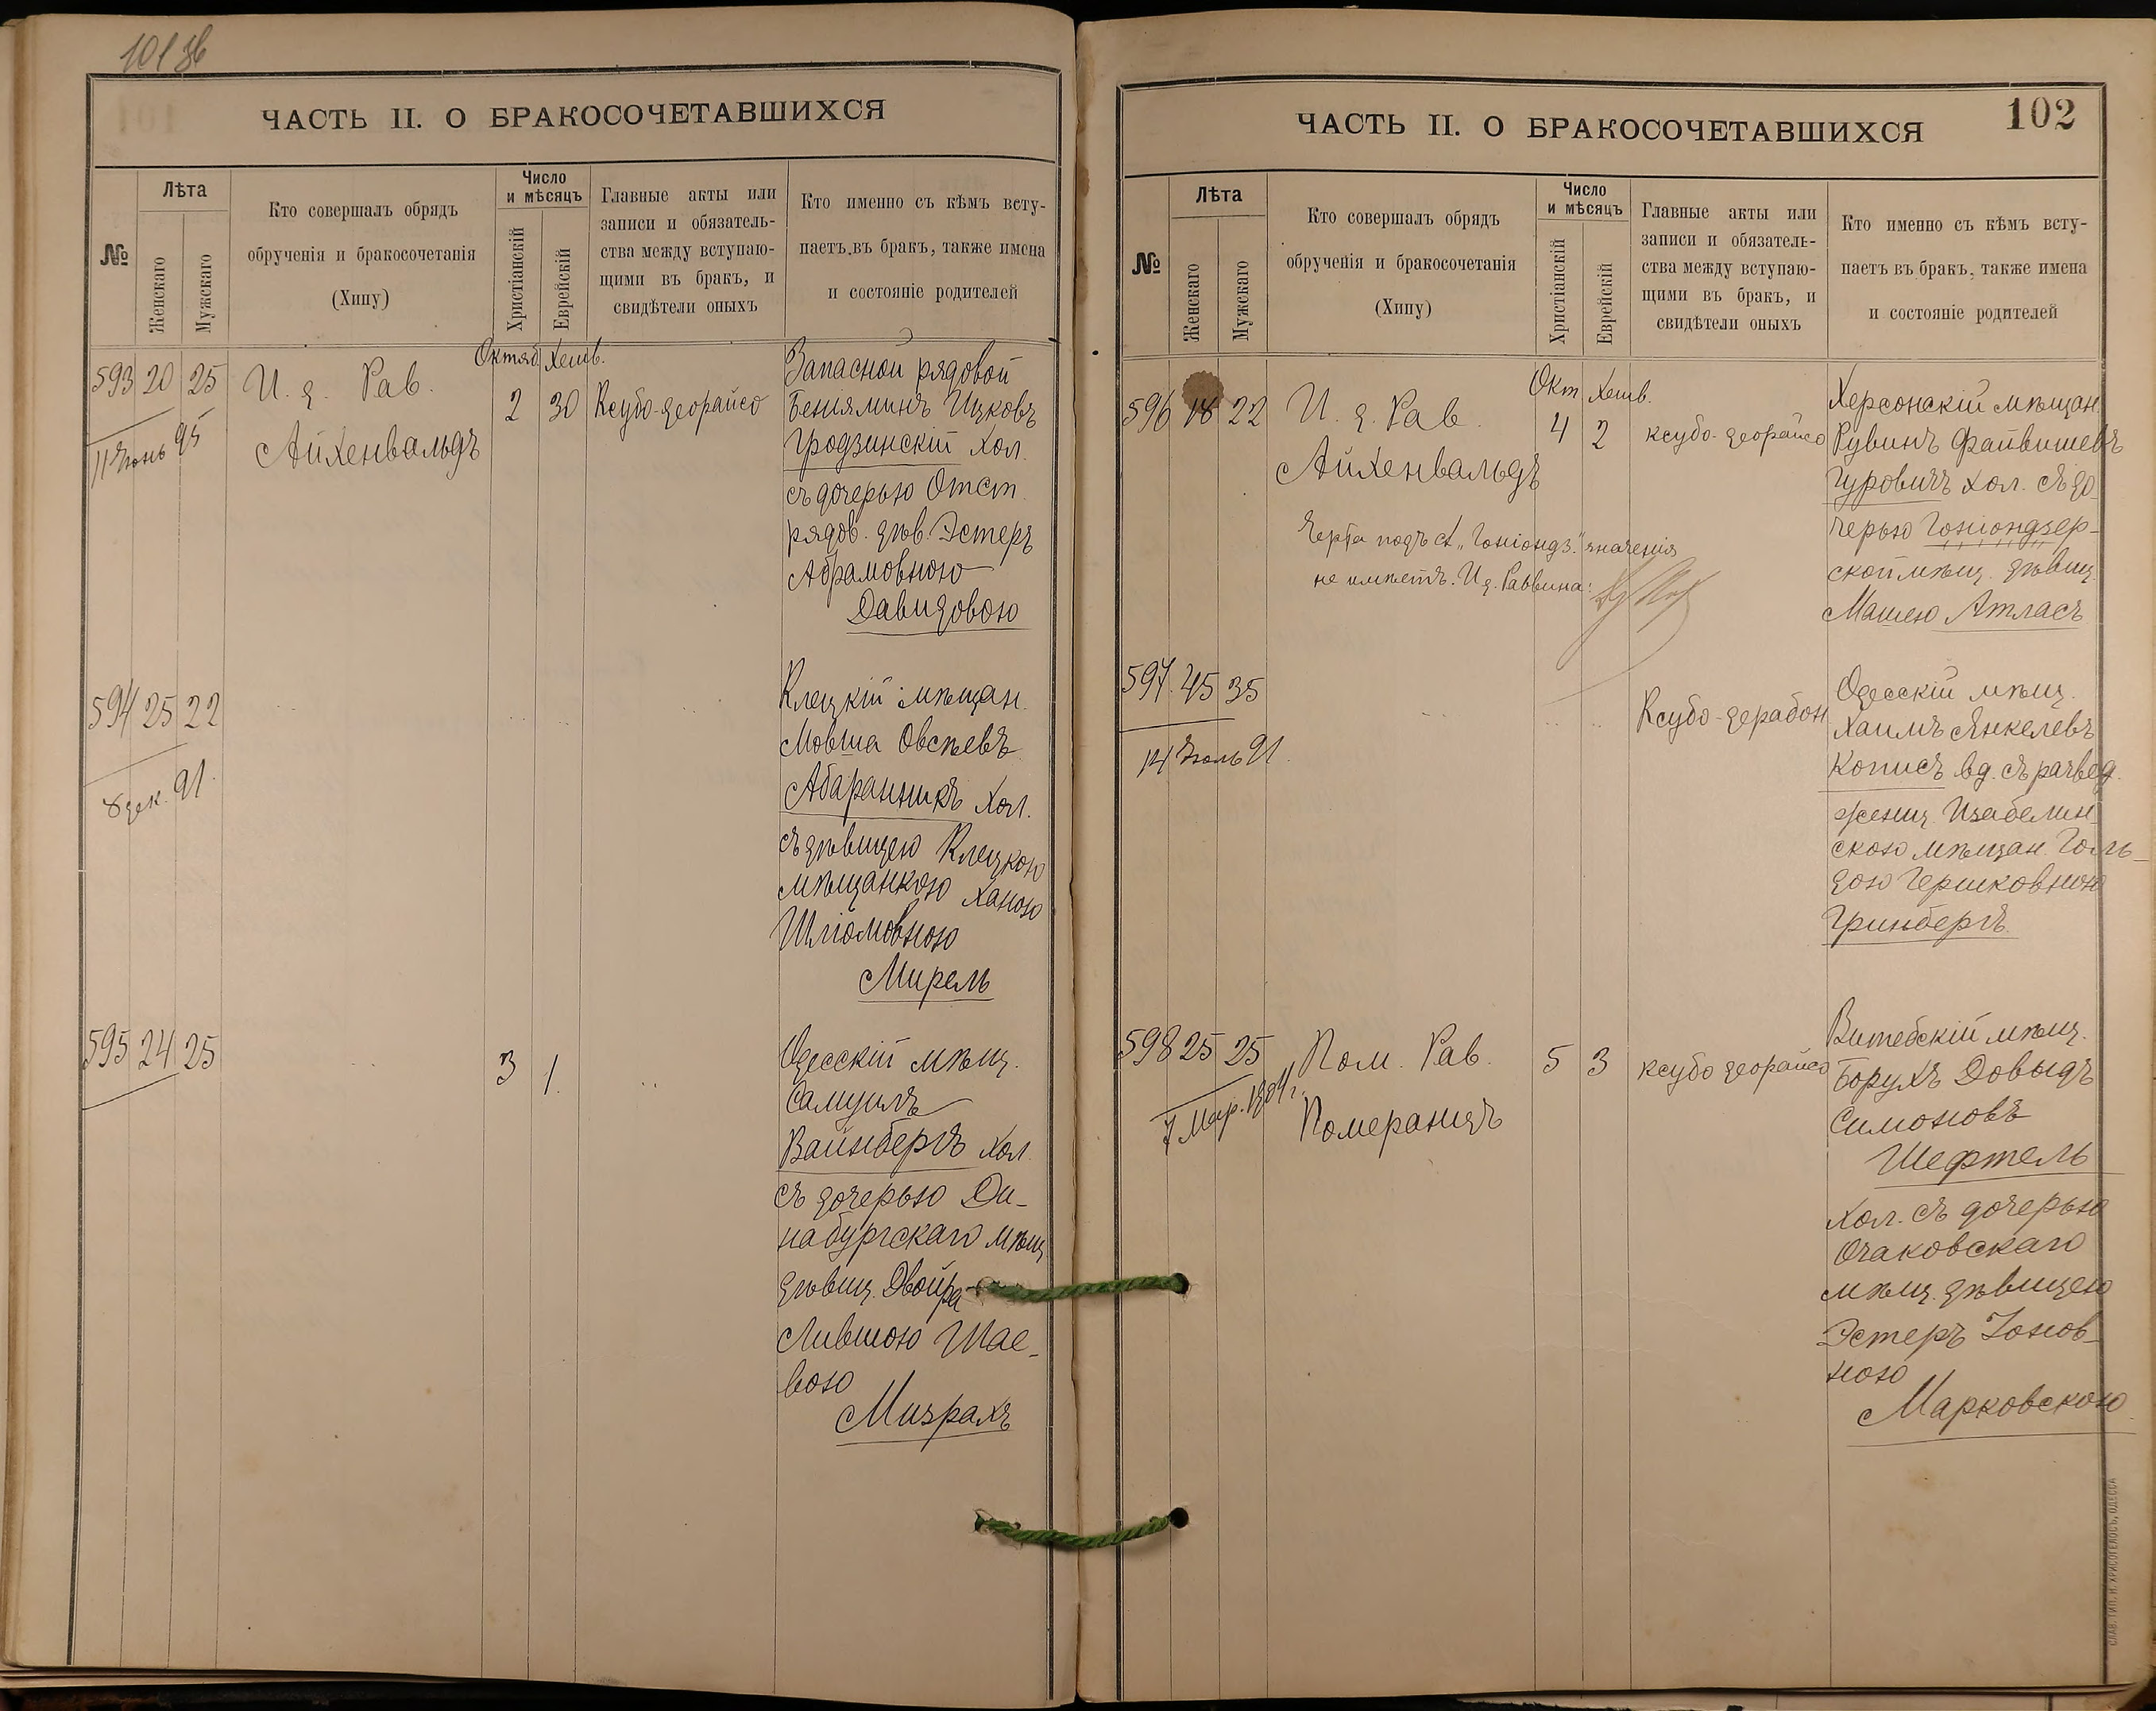 101 об
ЧАСТЬ II. О БРАКОСОЧЕТАВШИХСЯ
№
Лѣта
Женскаго
Мужскаго
Кто совершалъ обрядъ
обрученія и бракосочетанія
(Хипу)
Число
и мѣсяцъ
Христіанскій
Еврейскій
Главные акты или
записи и обязатель-
ства между вступаю-
щими въ бракъ, и
свидѣтели оныхъ
Кто именно съ кѣмъ всту-
паетъ въ бракъ, также имена
и состояніе родителей
Октяб. Хешв.
593 20 25 И. д. Рав. 2 30 Ксубо-деорайсо
Айхенвальдъ
11 Іюнь 95
Запасной рядовой
Беніяминъ Ицковъ
Гродзинскій хол.
съ дочерью Отст.
рядов. дѣв. Эстеръ
Абрамовною
Давидовою
594 25 22
8 дек. 91.
Клецкій мѣщан.
Мовша Овсѣевъ
Абаранчикъ хол.
съ дѣвицею Клецкою
мѣщанкою Ханою
Шліомовною
Мирель
595 24 25 3 1.
Одесскій мѣщ.
Самуилъ
Вайнбергъ хол.
съ дочерью Ди-
набургскаго мѣщ.
дѣвиц. Двойра-
Лившою Шае-
вою
Мизрахъ
102
ЧАСТЬ II. О БРАКОСОЧЕТАВШИХСЯ
№
Лѣта
Женскаго
Мужскаго
Кто совершалъ обрядъ
обрученія и бракосочетанія
(Хипу)
Число
и мѣсяцъ
Христіанскій
Еврейскій
Главные акты или
записи и обязатель-
ства между вступаю-
щими въ бракъ, и
свидѣтели оныхъ
Кто именно съ кѣмъ всту-
паетъ въ бракъ, также имена
и состояніе родителей
Окт Хешв.
596 18 22 И. д. Рав. 4 2 ксубо-деорайсо
Айхенвальдъ
Черта подъ сл. „Гоніондз." значенія
не имѣетъ. И д. Раввина:
Херсонскій мѣщан.
Рувинъ Файвишевъ
Гуровичъ хол. съ до-
черью Гоніондзер-
ской мѣщ. дѣвиц.
Машею Атласъ
597. 45 35 Ксубо-дерабон
14 Іюль 91.
Одесскій мѣщ.
Хаимъ Янкелевъ
Кописъ вд. съ развед.
женщ. Изабелин-
скою мѣщан.Голь-
дою Гершковною
Гринбергъ.
598 25 25 Пом. Рав. 5 3 ксубо деорайсо
Померанцъ
7 Мар. 1904 г.
Витебскій мѣщ.
Борухъ Довыдъ
Симоновъ
Шефтель
хол. съ дочерью
Очаковскаго
мѣщ. дѣвицею
Эстеръ Іонов-
ною
Марковскою
СЛАВ. ТИП. Н. ХРИСОГЕЛОСЪ, ОДЕССА